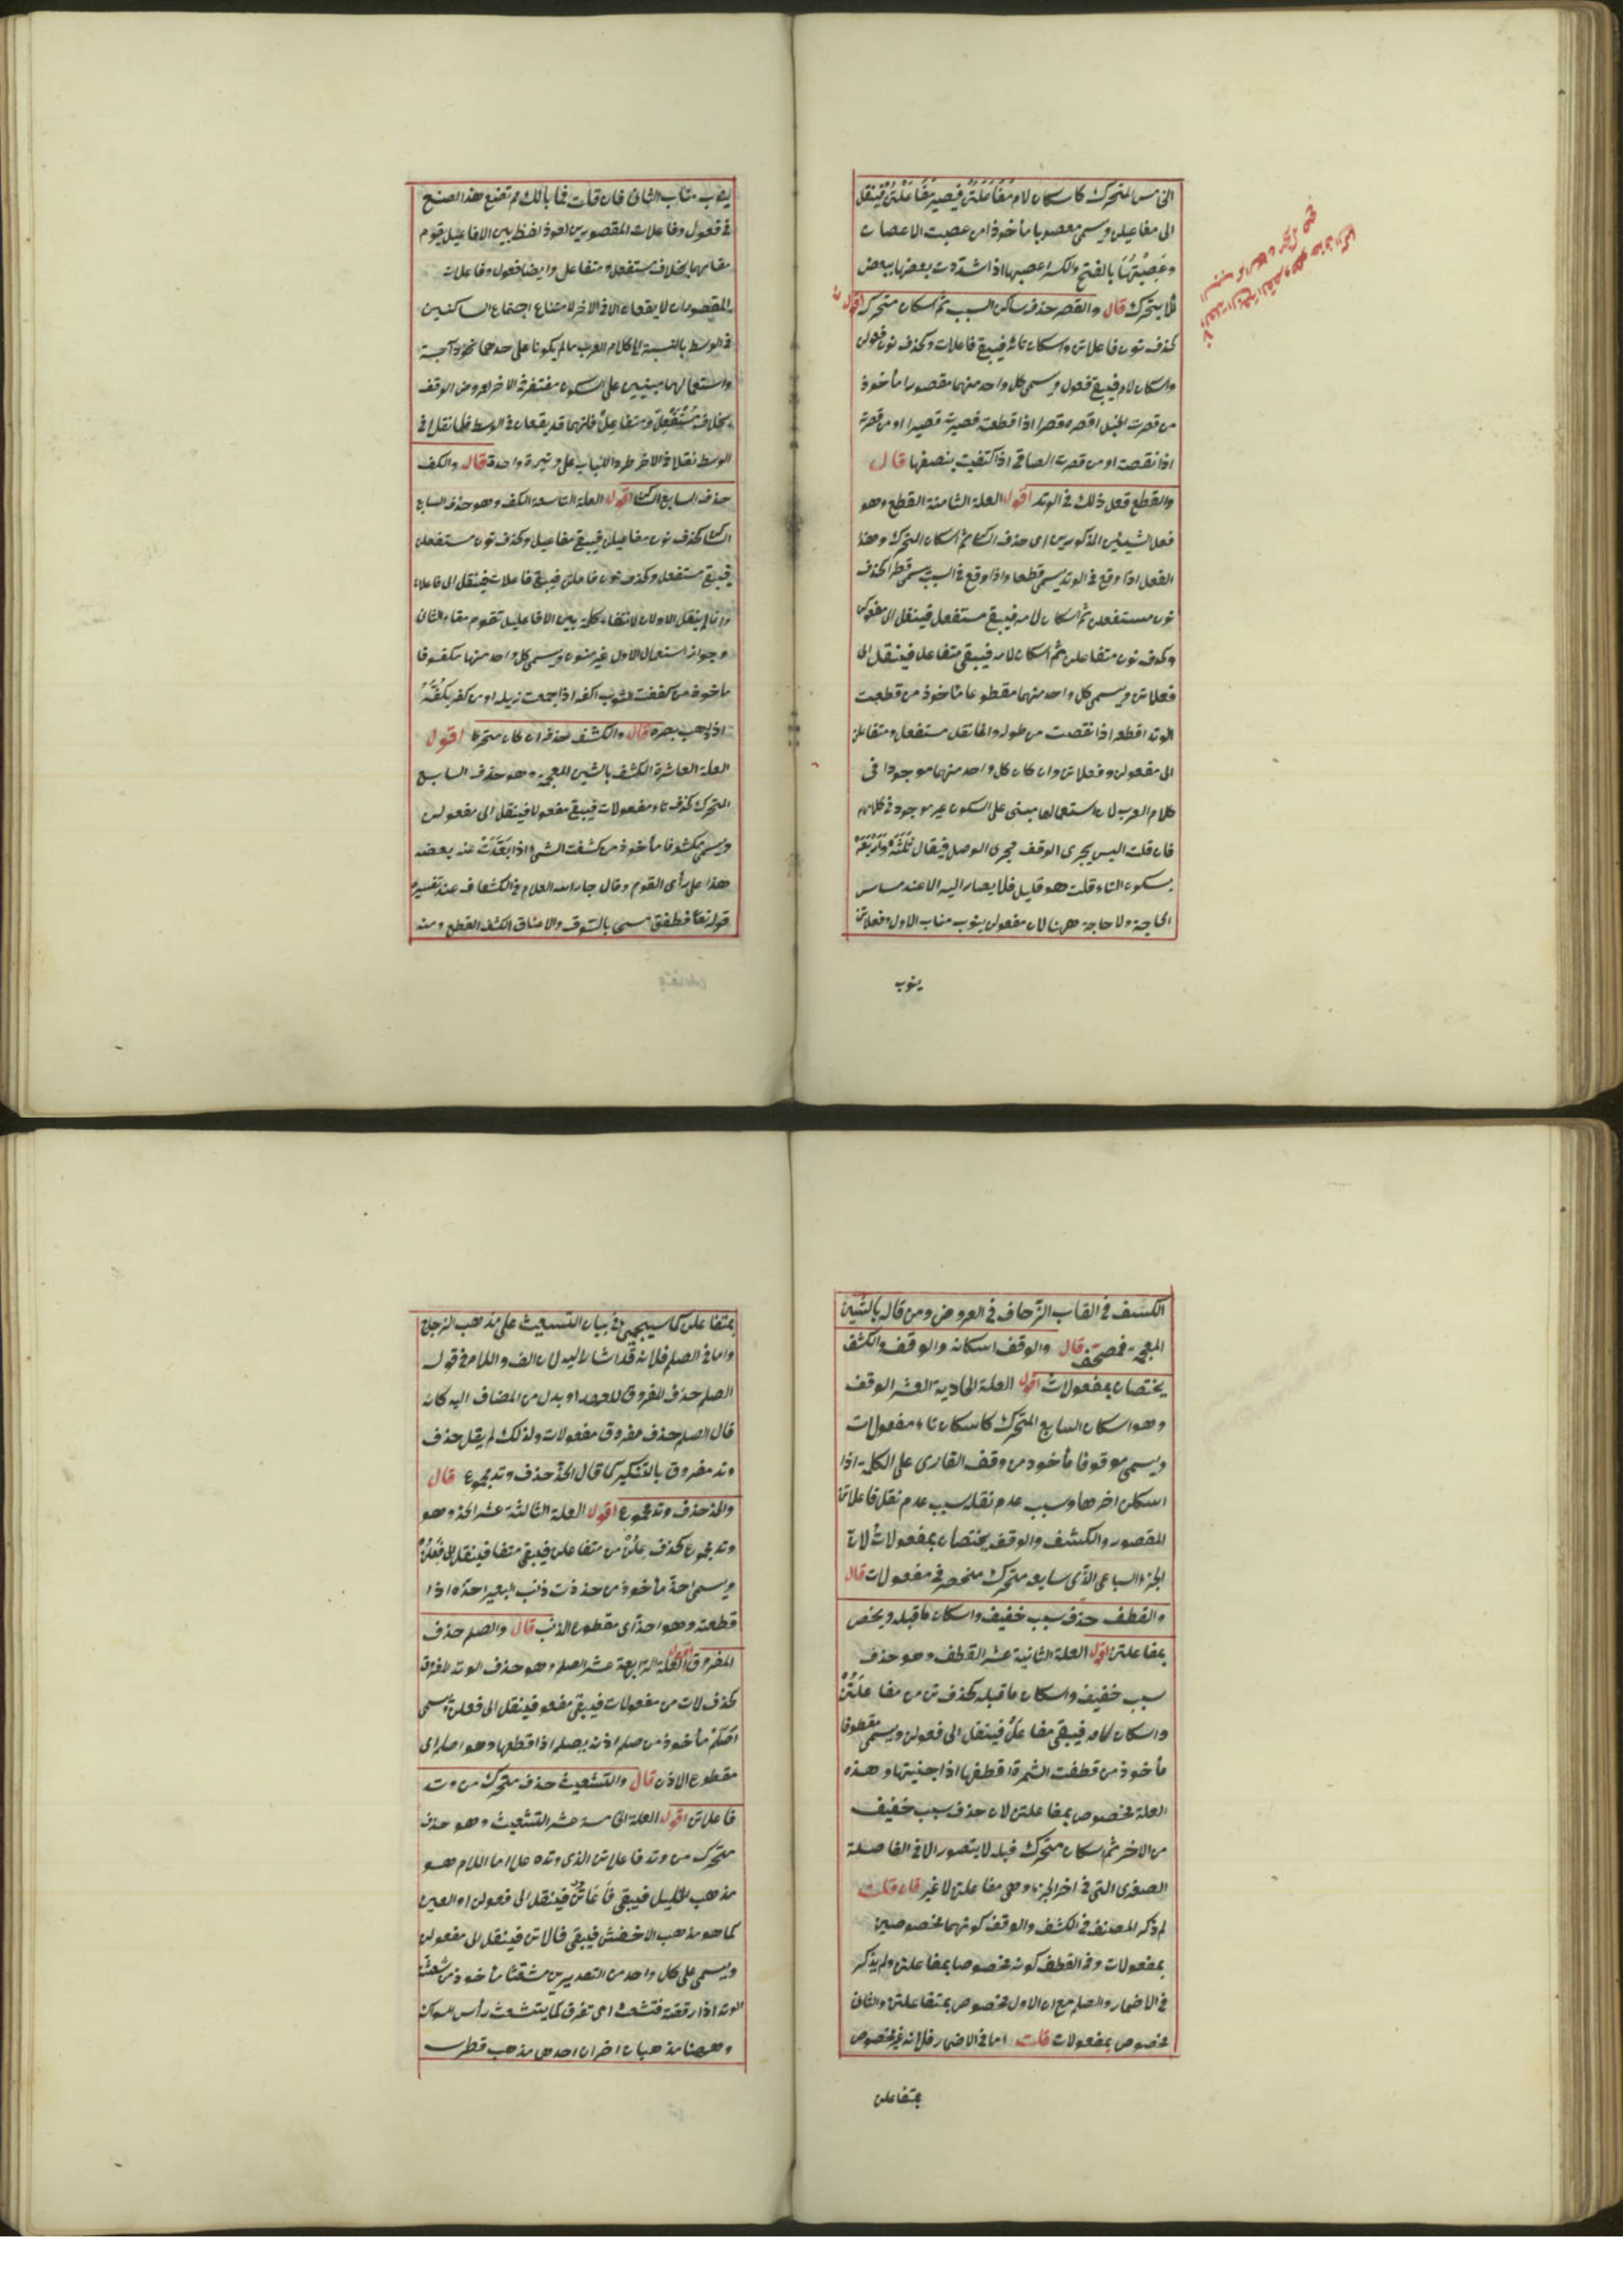 الخامس المتحرك كاسكان لام مُفَاعَلَتُن فيصير مفَاعَلْتُن فينقل
الى مفاعيلن ويسمى معصوبا مأخوذ من عصبت الاغصان
وعَصَبْتُهَا بالفتح والكسر اعصبها اذا شددت بعضها ببعض
لئلا يتحرك قال والقصر حذف ساكن السبب ثم اسكان متحركه اقول
كحذف نون فاعلاتن واسكان تائه فيبقى فاعلات وكحذف نون فعولن
واسكان لامه فيبقى فعول ويسمى كل واحد منهما مقصورا مأخوذ
من قصرت الحبل اقصره قصرا اذا قطعته فصيرته قصيرا او من قصرته
اذا نقصته او من قصرت الصلوة اذا اكتفيت بنصفها قال
والقطع فعل ذلك في الوتد اقول العلة الثامنة القطع وهو
فعل الشيئين المذكورين اى حذف الساكن ثم اسكان المتحرك وهذا
الفعل اذا وقع في الوتد يسمى قطعا واذا وقع في السبب يسمى قصرا كحذف
نون مستفعلن ثم اسكان لامه فيبقى مستفعل فينقل الى مفعولن
وكحذف نون متفاعلن ثم اسكان لامه فيبقى متفاعل فينقل الى
فعلاتن ويسمى كل واحد منهما مقطوعا مأخوذ من قطعت
الوتد اقطعه اذا نقصت من طوله وانما نقل مستفعل ومتفاعل
الى مفعولن وفعلاتن وان كان كل واحد منهما موجودا فى
كلام العرب لان استعمالها مبنى على السكون غير موجود في كلامهم
فان قلت اليس يجرى الوقف مجرى الوصل فيقال ثلثه واربعه
بسكون التاء قلت هو قليل فلا يصار اليه الا عند مساس
الحاجة ولا حاجة ههنا لان مفعولن ينوب مناب الاول وفعلاتن
ينوب
ينوب مناب الثانى فان قلت فما بالك لم تصنع هذا الصنع
في فعول وفاعلات المقصورين لعوذ لفظ بين الافاعيل يقوم
مقامهما بخلاف مستفعل ومتفاعل وايضا فعول وفاعلات
المقصوران لا يقعان الا في الآخر لامتناع اجتماع الساكنين
في الوسط بالنسبة الى كلام العرب ما لم يكونا على حدهما نحو دآبة
واستعمالهما مبنيين على السكون مغتفر في الآخر لعروض الوقف
بخلاف مُسْتَفْعِل ومتفاعل فانهما قد يقعان في الوسط فلما نقل في
الوسط نقل في الآخر طردا للباب على وتيرة واحدة قال والكف
حذف السابع الساكن اقول العلة التاسعة الكف وهو حذف السابع
الساكن كحذف نون مفاعيلن فيبقى مفاعيل وكحذف نون مستفعلن
فيبقى مستفعل وكحذف نون فاعلاتن فيبقى فاعلات فينقل الى فاعلات
وانما لم ينقل الاولان لانتفاء كلمة بين الافاعيل تقوم مقام الثانى
وجواز استعمال الاول غير منون ويسمى كل واحد منهما مكفوفا
مأخوذ من كففت الثوب اكفه اذا جمعت ذيله او من كف يكُفُّهُ
اذا ذهب بصره قال والكشف حذفه ان كان متحركا اقول
العلة العاشرة الكشف بالشين المعجمة وهو حذف السابع
المتحرك كحذف تاء مفعولات فيبقى مفعولا فينقل الى مفعولن
ويسمى مكشوفا مأخوذ من كشفت الشئ اذا بعدت عنه بعضه
هذا على رأى القوم وقال جار الله العلام في الكشاف عند تفسير
قوله تعالى فطفق مسحا بالسوق والاعناق الكشف القطع ومنه
الكسف في القاب الزحاف في العروض ومن قاله بالشين
المعجمة فمصحف قال والوقف اسكانه والوقف والكشف
يختصان بمفعولات اقول العلة الحادية العشر الوقف
وهو اسكان السابع المتحرك كاسكان تاء مفعولات
ويسمى موقوفا مأخوذ من وقف القارى على الكلمة اذا
اسكن اخرها وسبب عدم نقله سبب عدم نقل فاعلات
المقصور والكشف والوقف يختصان بمفعولات لان
الجزء السباعى الذى سابعه متحرك منحصر في مفعولات قال
والقطف حذف سبب خفيف واسكان ما قبله ويختص
بمفاعلتن اقول العلة الثانية عشر القطف وهو حذف
سبب خفيف واسكان ما قبله كحذف تن من مفاعَلَتُن
واسكان لامه فيبقى مفاعَلْ فينقل الى فعولن ويسمى مقطوفا
مأخوذ من قطفت الثمرة اقطفها اذا جنيتها وهذه
العلة مخصوص بمفاعلتن لان حذف سبب خفيف
من الآخر ثم اسكان متحرك قبله لا يتصور الا في الفاصلة
الصغرى التى في آخر الجزء وهى مفاعلتن لا غير فان قلت
لم ذكر المصنف في الكشف والوقف كونهما مخصوصين
بمفعولات وفي القطف كونه مخصوصا بمفاعلتن ولم يذكر
في الاضمار والصلم مع ان الاول مخصوص بمتفاعلن والثانى
مخصوص بمفعولات قلت اما في الاضمار فلانه غير مخصوص
بمتفاعلن
بمتفاعلن كما سيجئ في بيان التشعيث على مذهب الزجاج
واما في الصلم فلانه قد اشار اليه لان الف واللام في قوله
الصلم حذف المفروق للعهد او بدل من المضاف اليه كانه
قال الصلم حذف مفروق مفعولات ولذلك لم يقل حذف
وتد مفروق بالتنكير كما قال الحذ حذف وتد مجموع قال
والحذ حذف وتد مجموع اقول العلة الثالثة عشر الحذ وهو
وتد مجموع كحذف علن من متفاعلن فيبقى متفا فينقل الى فَعِلُن
ويسمى احذ مأخوذ من حذذت ذنب البعير احذه اذا
قطعته وهو احذ اى مقطوع الذنب قال والصلم حذف
المفروق اقول العلة الرابعة عشر الصلم وهو حذف الوتد المفروق
كحذف لات من مفعولات فيبقى مفعو فينقل الى فعلن ويسمى
اصلم مأخوذ من صلم اذنه يصلم اذا قطعها وهو اصلم اى
مقطوع الاذن قال والتشعيث حذف متحرك من وتد
فاعلاتن اقول العلة الخامسة عشر التشعيث وهو حذف
متحرك من وتد فاعلاتن الذى وتده علا اما اللام هو
مذهب الخليل فيبقى فاعاتن فينقل الى مفعولن او العين
كما هو مذهب الاخفش فيبقى فالاتن فينقل الى مفعولن
ويسمى على كل واحد من التقديرين مشعثا مأخوذ من شعثت
الوتد اذا رققته فتشعث اى تفرق كما يتشعث رأس السواك
وههنا مذهبان اخران احدهما مذهب قطرب